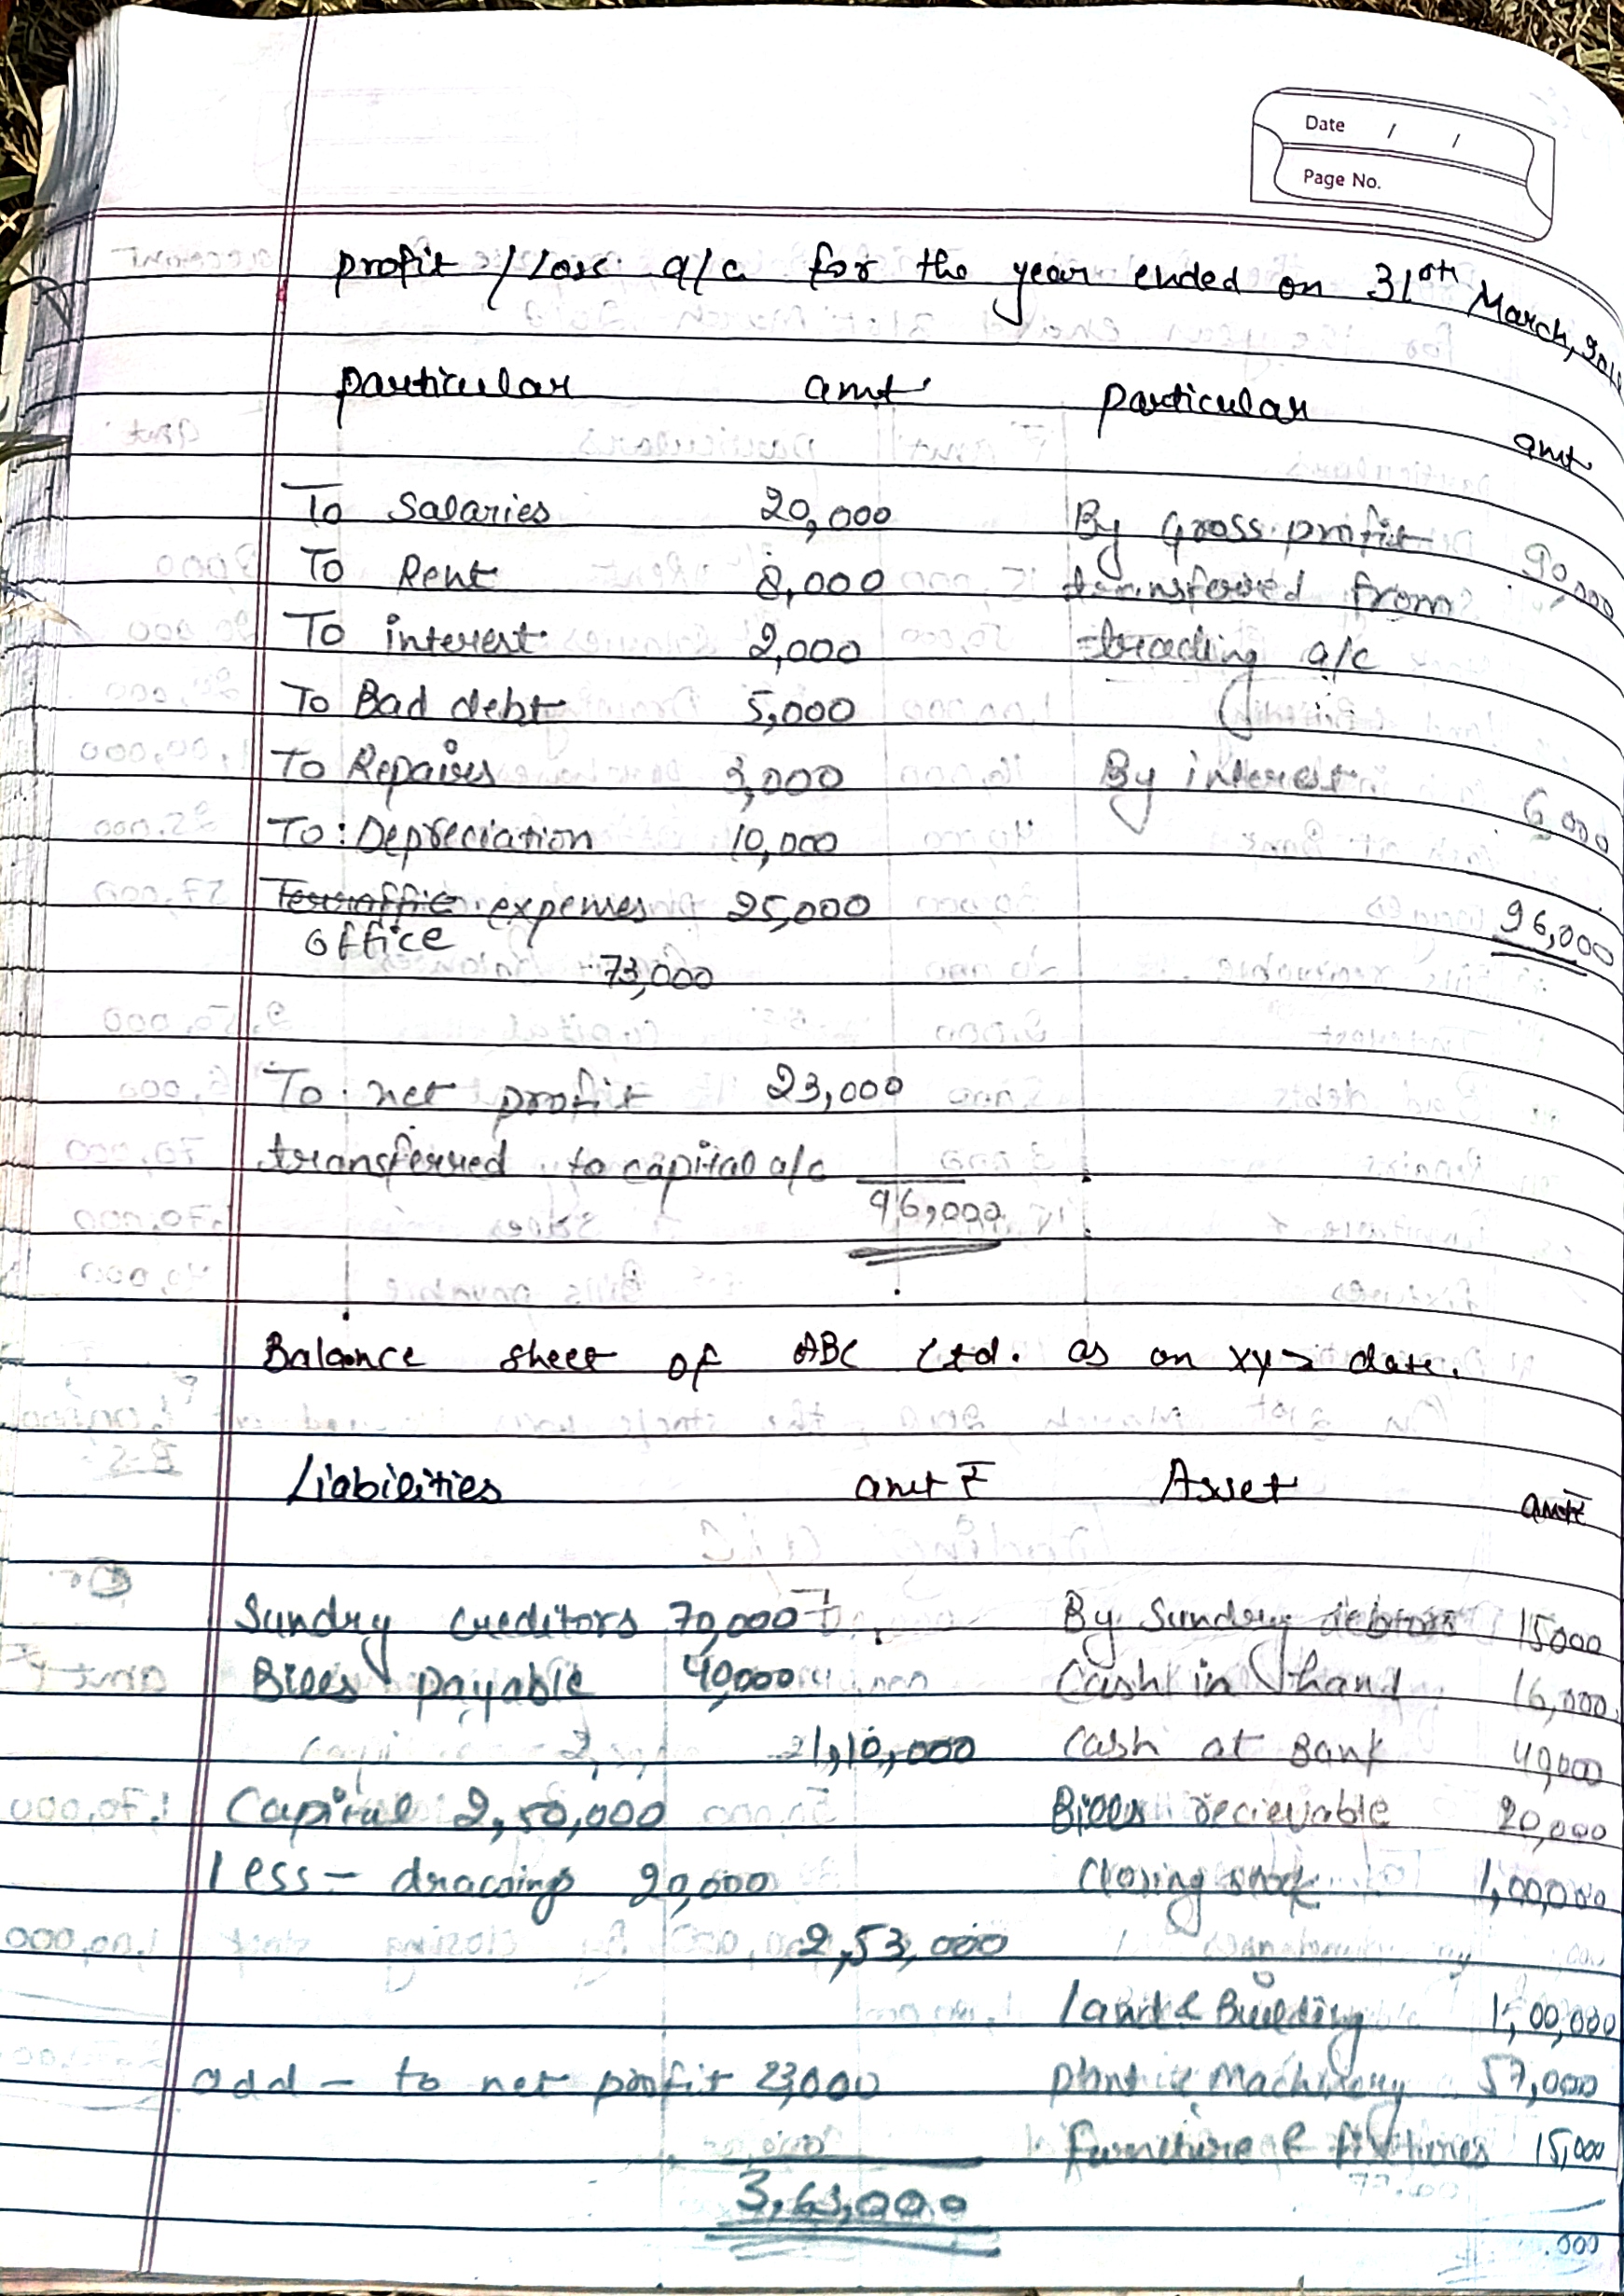 Date / /
Page No.
profit / Loss a/c for the year ended on 31st March,
particular amt particular amt
To Salaries 20,000 By Gross profit 90,000
To Rent 8,000 transferred from
To interest 2,000 trading a/c
To Bad debt 5,000
To Repaires 3,000 By interest 6,000
To : Depreciation 10,000
expenses 25,000 96,000
office
73,000
To net profit 23,000
transferred to capital a/c
96,000
Balance sheet of ABC Ltd. as on xyz date.
Liabilities amt ₹ Asset amt
Sundry creditors 70,000 By Sundry debtors 15000
Bills payable 40,000 Cash in hand 16,000
1,10,000 Cash at Bank 40,000
Capital 2,50,000 Bills recievable 20,000
less - drawings 20,000 Closing stock 1,00,000
2,53,000
land & Building 1,00,000
add - to net profit 23,000 plant & Machinery 57,000
furniture & fixtures 15,000
3,63,000